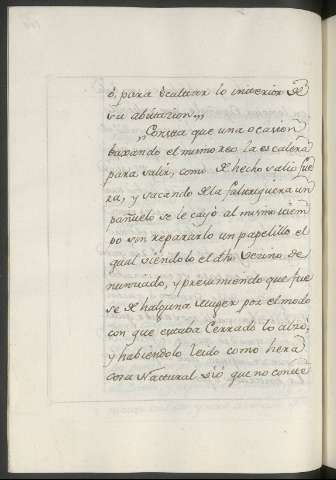 o, para ocultar lo interior de
su abitacion,,
,,Consta que una ocasion
baxando el mismo reo la escalera
para salir, como de hecho salió fue
ra, y sacando de la faltriquera un
pañuelo se le cayó al mismo tiem
po sin repararlo un papelillo el
qual siendolo el dho Vecino de
nunciado, y presumiendo que fue
se de halguna Muger por el modo
con que estaba Cerrado lo alzó;
y habiendolo leido como hera
cosa Natural vió que no conte